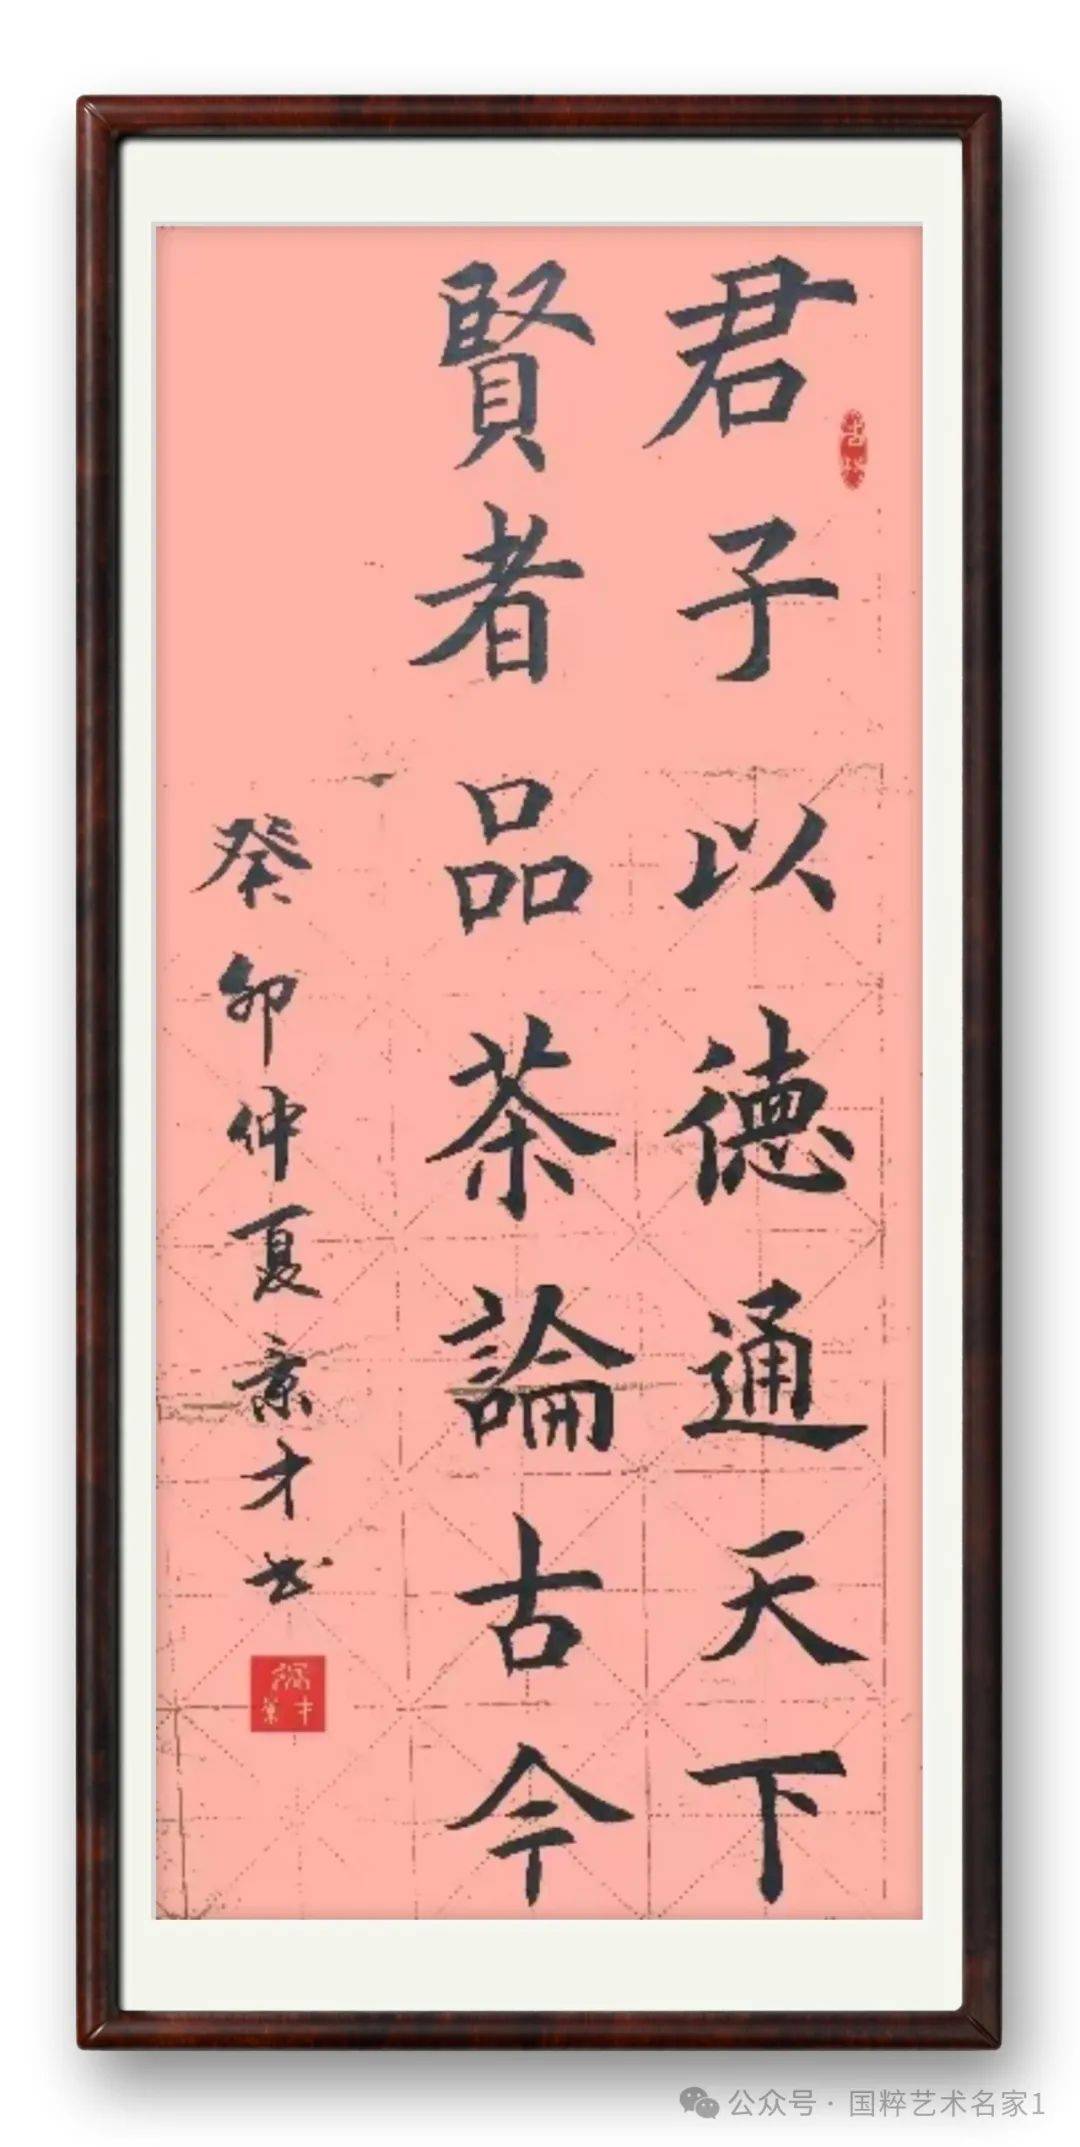 君子以德通天下
賢者品茶論古今
癸卯仲夏景才书
公众号·国粹艺术名家1